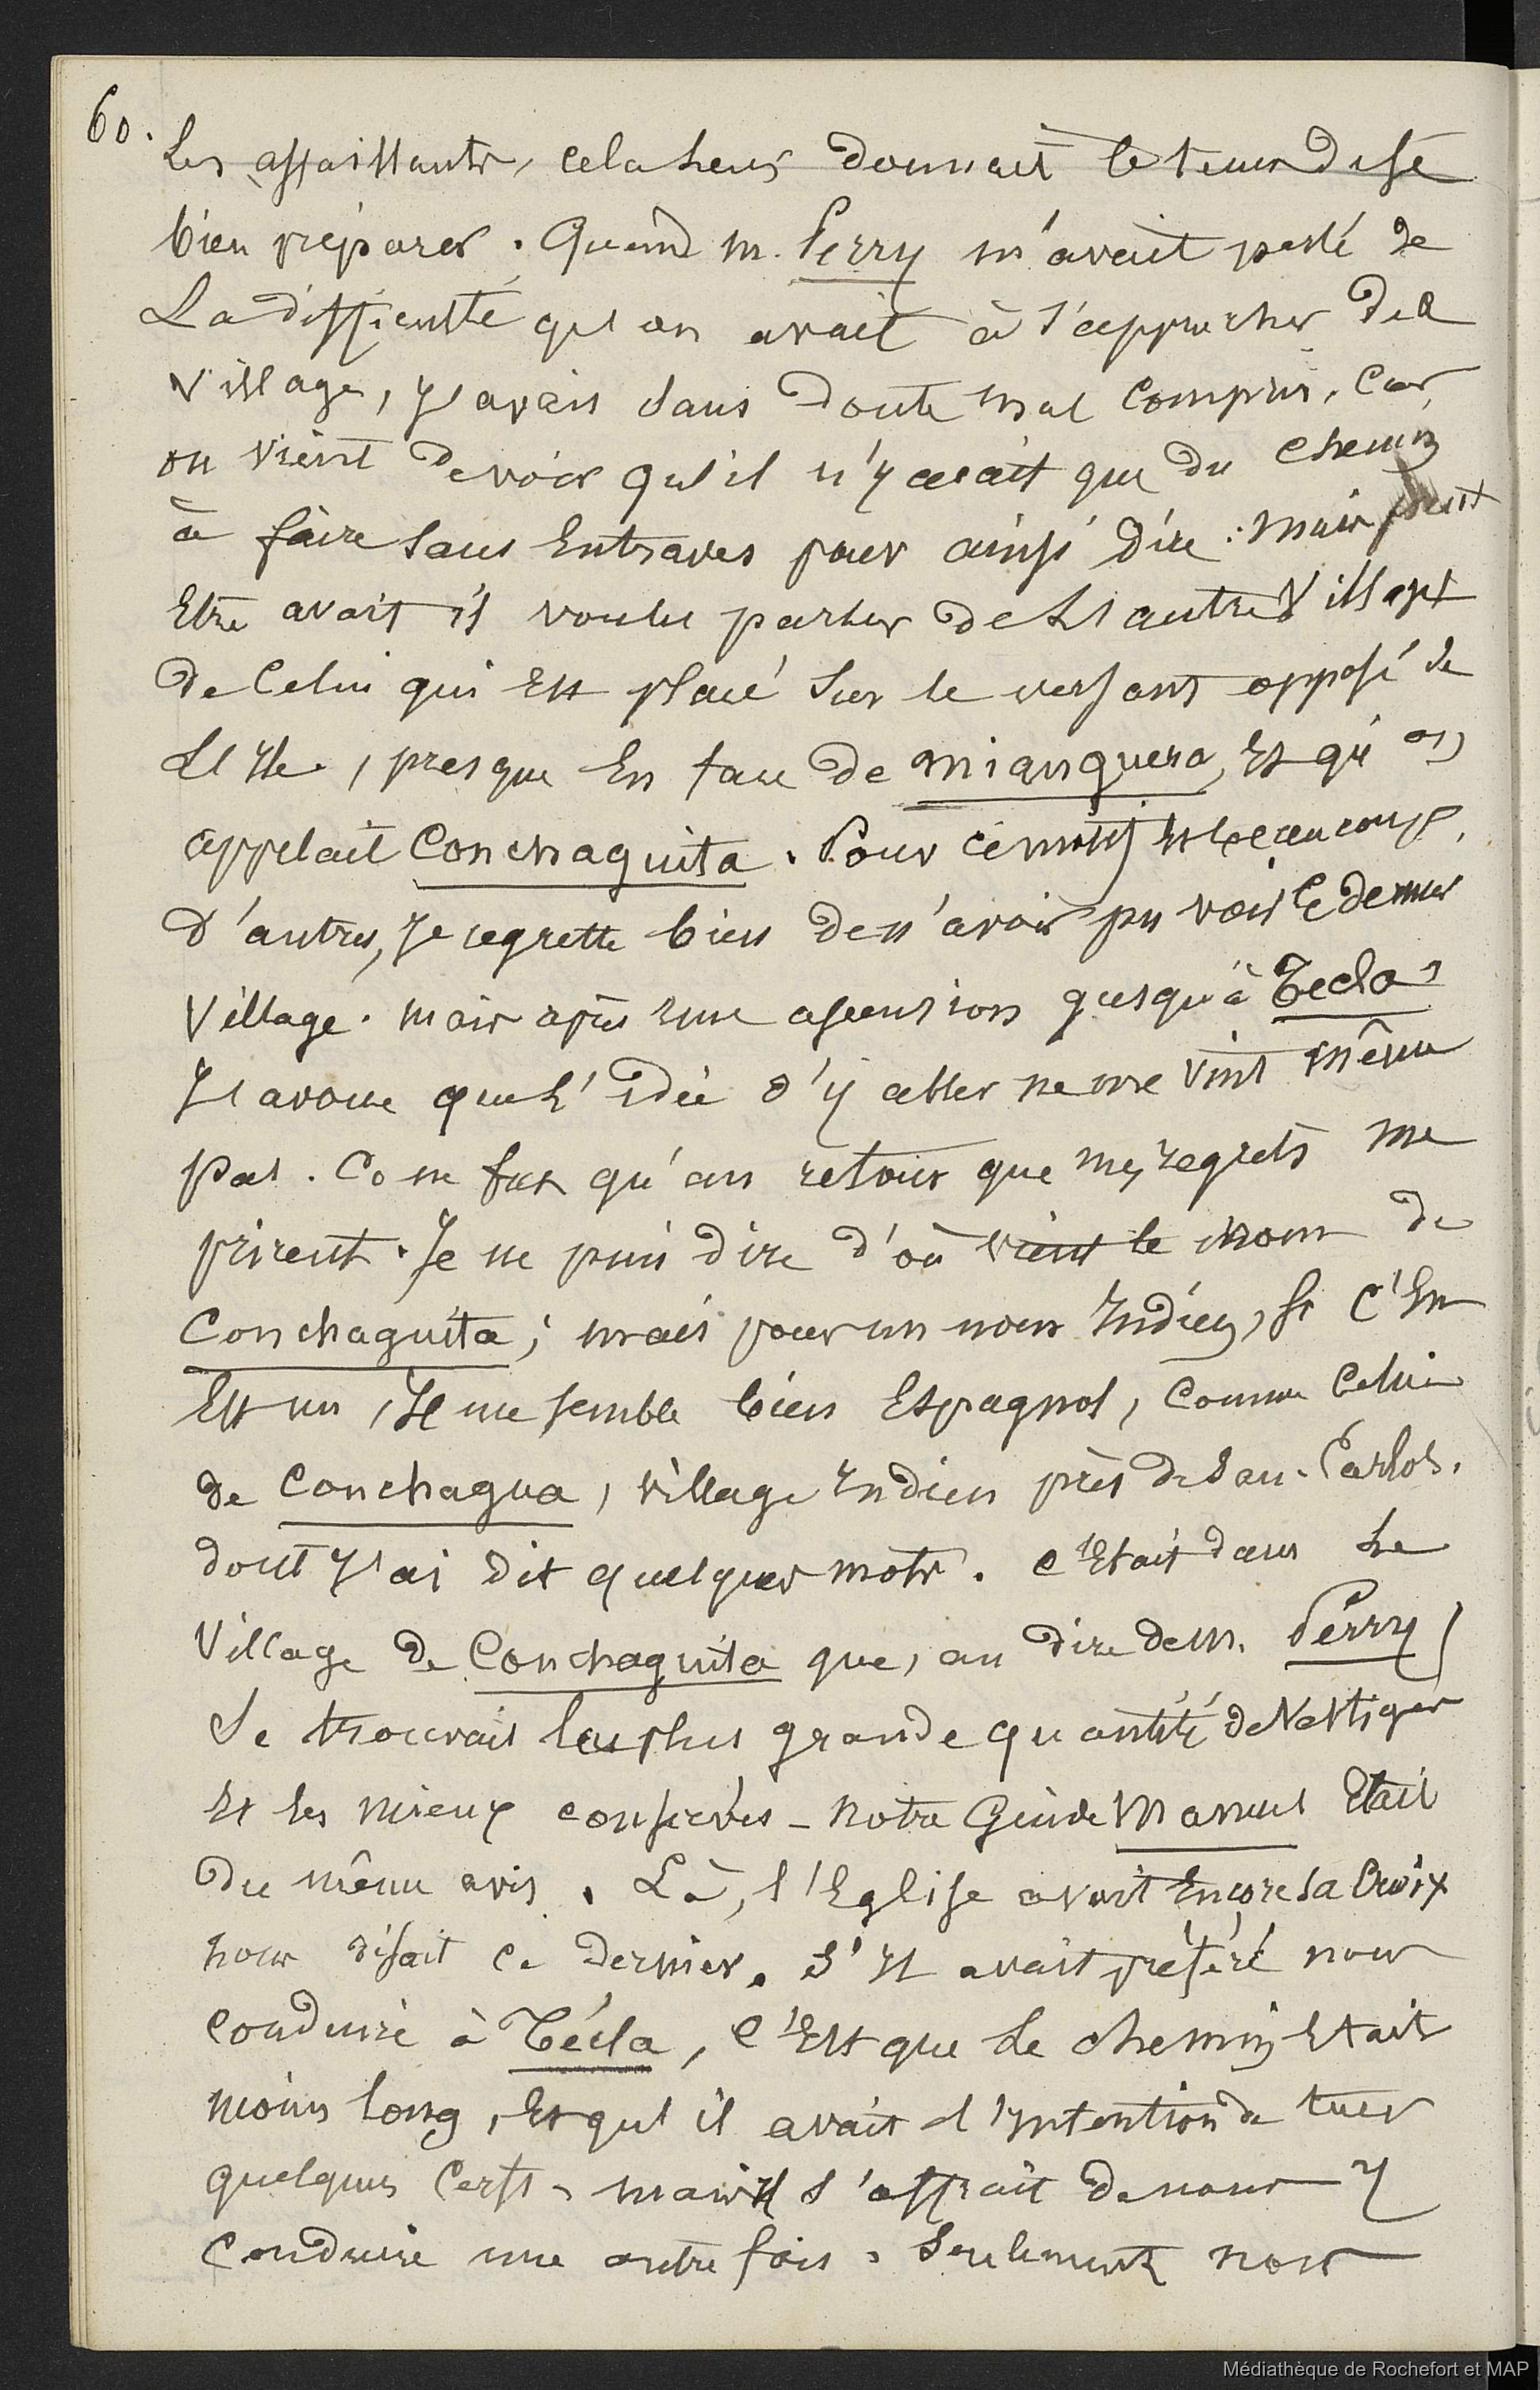 60.
Les assaillants, cela leur donnait le tems de se
bien préparer. Quand M. Perry m'avait parlé de
La difficulté qu'on avait à s'approcher de
village, J'avais sans doute mal compris, car
on vient de voir qu'il n'y avait que du chemin
à faire sans Entraves pour ainsi dire : mais peut
Etre avait il voulu parler de L'autre Village
de Celui qui Est placé sur le versant opposé de
L'Ile, presque En face de Mianguera, Et qu'on
appelait Conchaguita. Pour ce motif Et beaucoup
d'autres, Je regrette bien de n'avoir pu voir ce dernier
Village. Mais après une ascension jusqu'à Tecla
J'avoue que L'idée d'y aller ne me vint même
pas. Ce ne fut qu'au retour que mes regrets me
prirent. Je ne puis dire d'où vient le nom de
Conchaguita ; mais pour un nom Indien, si C'En
Est un, Il me semble bien Espagnol, Comme Celui
de Conchagua, village Indien près de San-Carlos.
dont J'ai dit quelques mots. C'Etait dans Le
Village de Conchaguita que, au dire de M. Perry
Se trouvait la plus grande quantité de Vestiges
Et les mieux conservés - Notre Guide Manuel Etait
du même avis. Là, l'Eglise avait Encore sa Croix
nous disait ce dernier. S'Il avait préféré nous
conduire à Técla, C'Est que Le chemin Etait
moins long, Et qu'il avait l'Intention de tuer
quelques Cerfs - mais Il s'offrait de nous Y
Conduire une autre fois. Seulement nous
Médiathèque de Rochefort et MAP